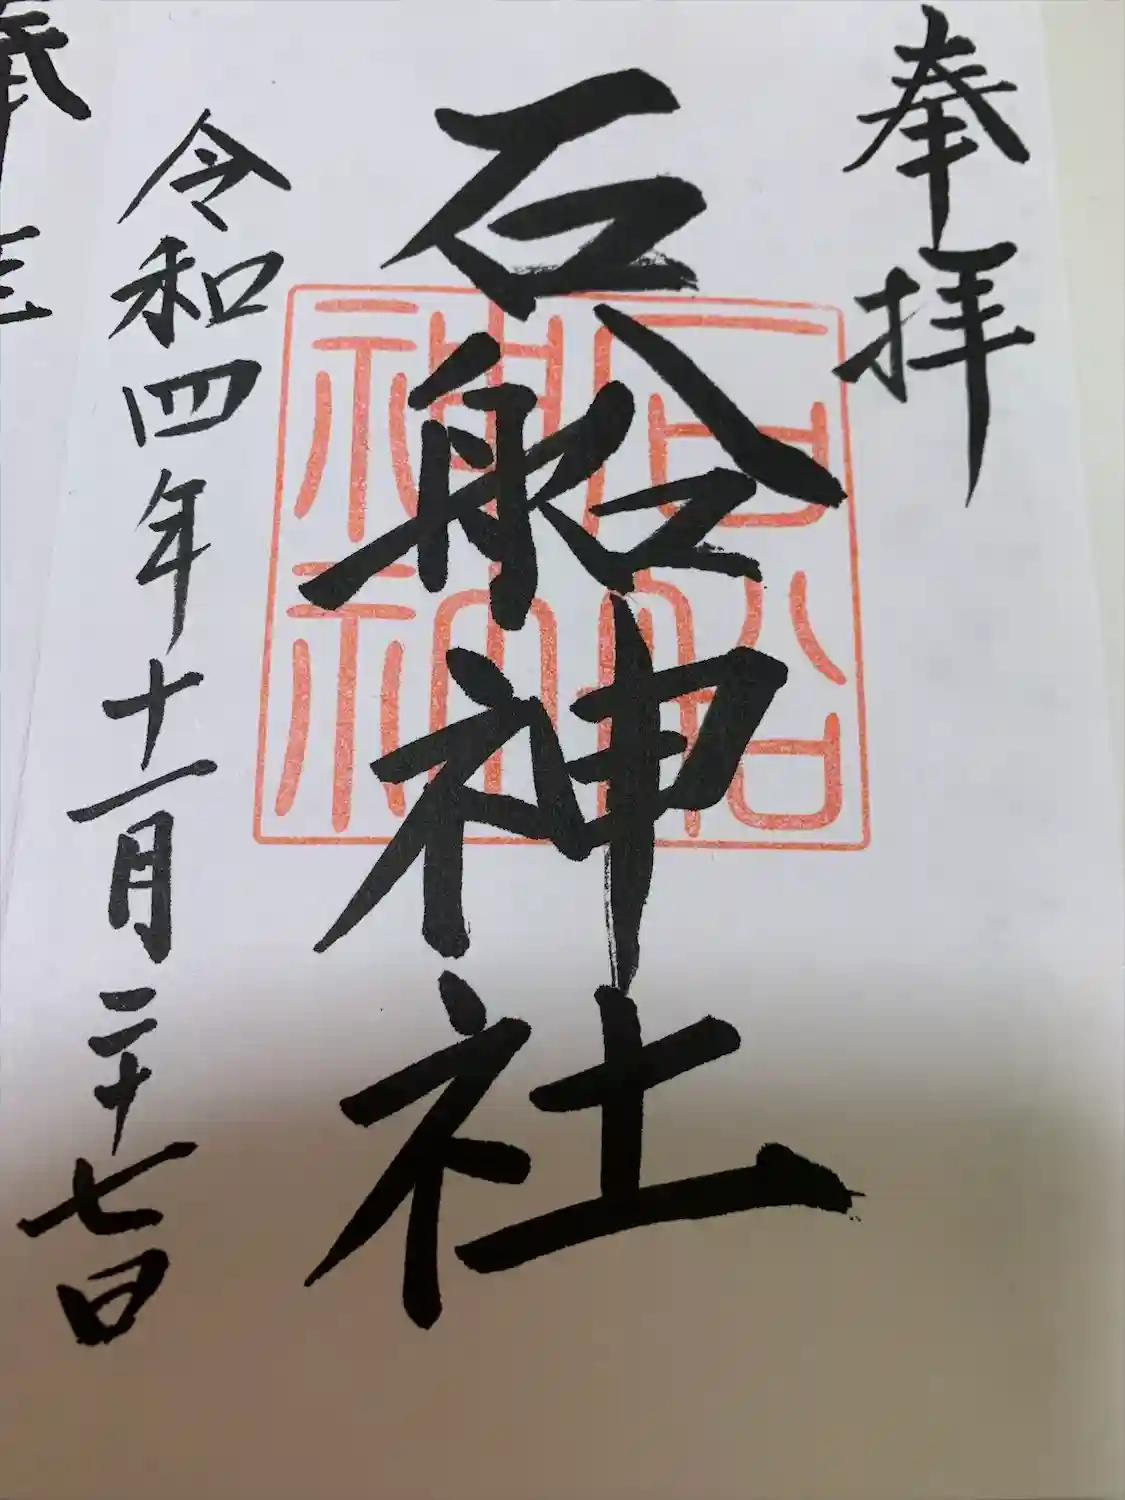 奉拝
石船神社
石船
神社
令和四年十一月二十七日
奉